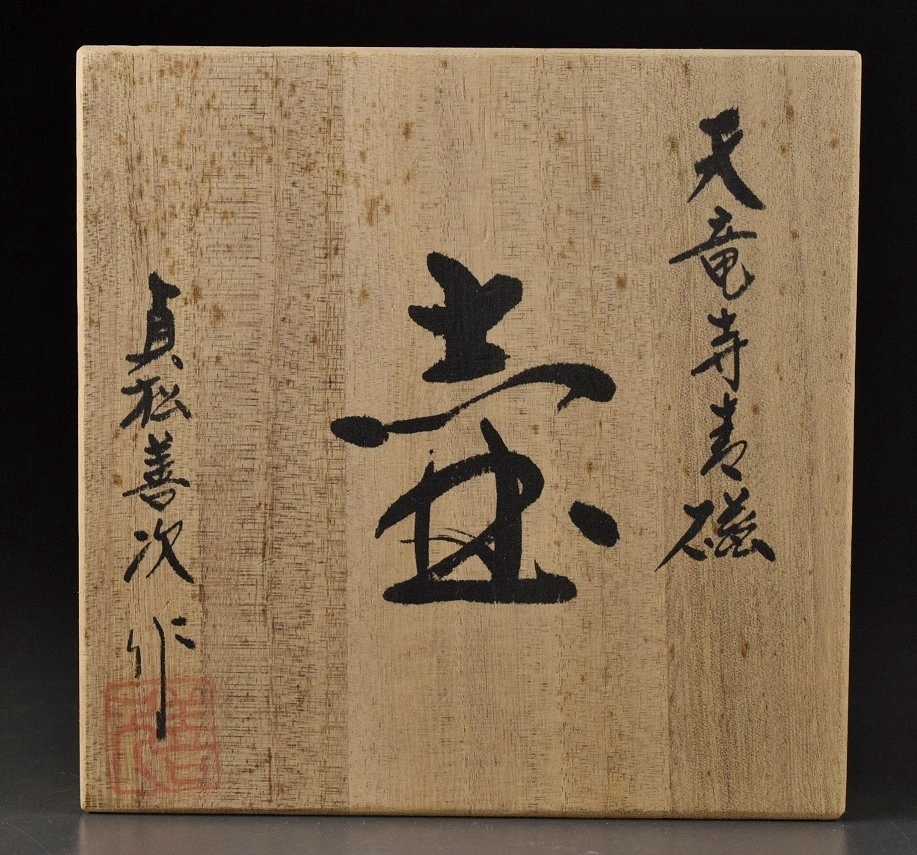 天竜寺青磁
壷
貞松善次作